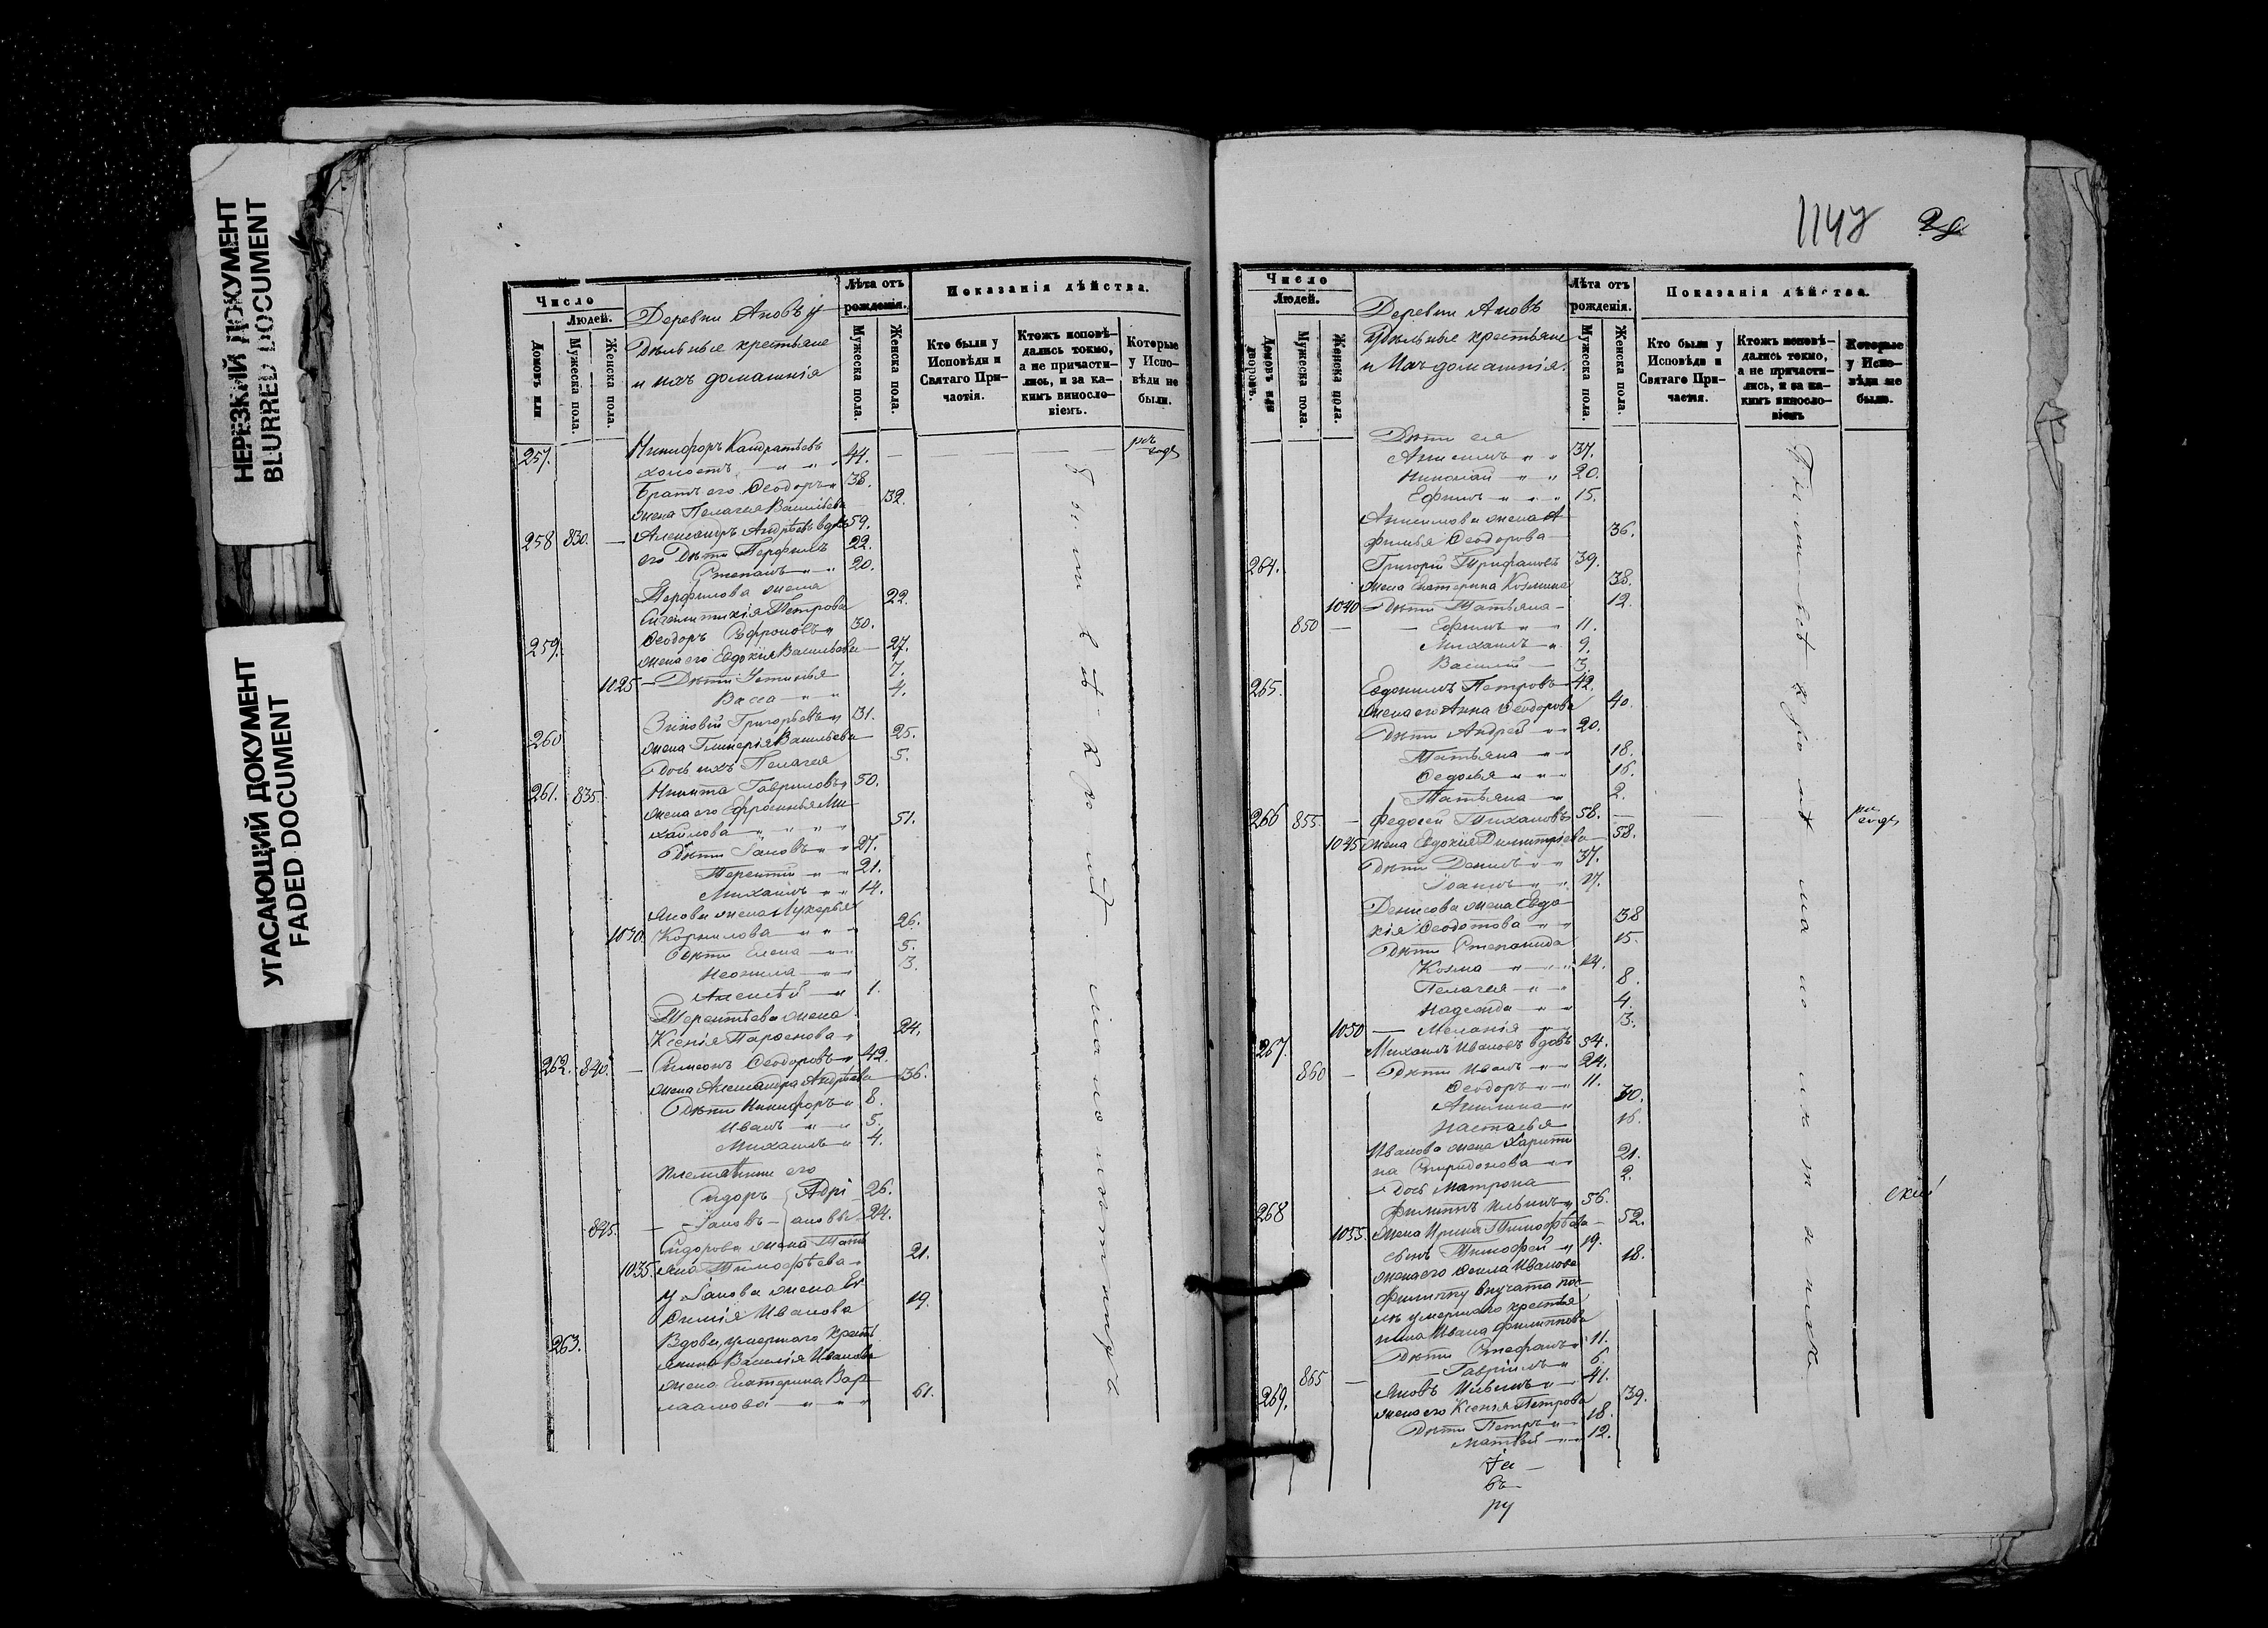 НЕРЕЗКИЙ ДОКУМЕНТ
BLURRED DOCUMENT
УГАСАЮЩИЙ ДОКУМЕНТ
FADED DOCUMENT
Число
Людей.
Домовъ или
Мужеска пола.
Женска пола.
Деревни
крестьяне
и ихъ домашнія
Лѣта отъ рожденія.
Мужеска пола.
Женска пола.
Показанія дѣйства.
Кто были у Исповѣди и Святаго Причастія.
Ктожъ исповѣдались токмо, а не причастились, и за какимъ винословіемъ.
Которые у Исповѣди не были.
257. Никифоръ Кандратьевъ
холостъ 44.
Братъ его Ѳеодоръ 38.
жена Пелагея Васильева 32.
258 830. Александръ Андреевъ вдовъ 59.
его Дѣти Перфилъ 22.
Степанъ 20.
Перфилова жена
Петрова 22.
259. Ѳеодоръ 30.
жена его Евдокія Васильева 27.
1025 Дѣти Устинья 7.
Васса 4.
260 Зиновій Григорьевъ 31.
жена Гликерія Васильева 25.
Дочь ихъ Пелагея 5.
261. 835. Никита Гавриловъ 50.
жена его Ефросинья Ми-
хайлова 51.
Дѣти Іаковъ 27.
Терентій 21.
Михаилъ 14.
жена Лукерья
1030. Корнилова 26.
Дѣти Елена 5.
Неонила 3.
Алексѣй 1.
Терентьева жена
Ксенія Парѳенова 24.
262. 840. Симеонъ Ѳеодоровъ 42.
жена Александра Андреева 36.
Дѣти Никифоръ 8.
Иванъ 5.
Михаилъ 4.
его
Сидоръ Адрі 26.
845. Іаковъ ановы 24.
Сидорова жена Тать
1035. яна Тимофѣева 21.
Іакова жена
Иванова 19.
263. Вдова, умершаго кресть
янина Василія Иванова
жена Екатерина Вар
лаамова 61.
1147
Число
Людей.
Домовъ или дворовъ.
Мужеска пола.
Женска пола.
Деревни
Удѣльные крестьяне
и ихъ домашнія.
Лѣта отъ рожденія.
Мужеска пола.
Женска пола.
Показанія дѣйства.
Кто были у Исповѣди и Святаго Причастія.
Ктожъ исповѣдались токмо, а не причастились, и за какимъ винословіемъ
Которые у Исповѣди не были.
Дѣти ея
37.
Николай 20.
Ефимъ 15.
жена А
Ѳеодорова 36.
264. Григорій Трифановъ 39.
жена Екатерина Козмина 38.
1040 Дѣти Татьяна 12.
850 Ефимъ 11.
Михаилъ 9.
Василій 3.
265. Евдокимъ Петровъ 42.
жена его Анна Ѳеодорова 40.
Дѣти Андрей 20.
Татьяна 18.
Ѳедосья 16.
Татьяна 2.
266 855 Федосей 58.
1045 жена Евдокія Димитріева 58.
Дѣти Денисъ 37.
Іоаннъ 17.
Денисова жена Евдо
кія Ѳеодотова 38
Дѣти Степанида 15.
Козма 14.
Пелагея 8.
Надежда 4.
1050 Меланія 3.
267. Михаилъ Ивановъ вдовъ 54.
860 Дѣти Иванъ 24.
Ѳеодоръ 11.
Акилина 30.
Настасья 16.
Иванова жена Харити
на Спиридонова 21.
Дочь Матрона 2.
268 Филиппъ Ильинъ 56.
1055. жена Ирина Тимофѣева 52.
сынъ Тимофей 19.
жена его Ѳекла Иванова 18.
Филиппу внучата по-
слѣ умершаго крестья
нина Ивана Филиппова
Дѣти Стефанъ 11.
Гавріилъ 6.
269. 865 Яковъ Ильинъ 41.
жена его Ксенія Петрова 39.
Дѣти Петръ 18.
Матвей 12.